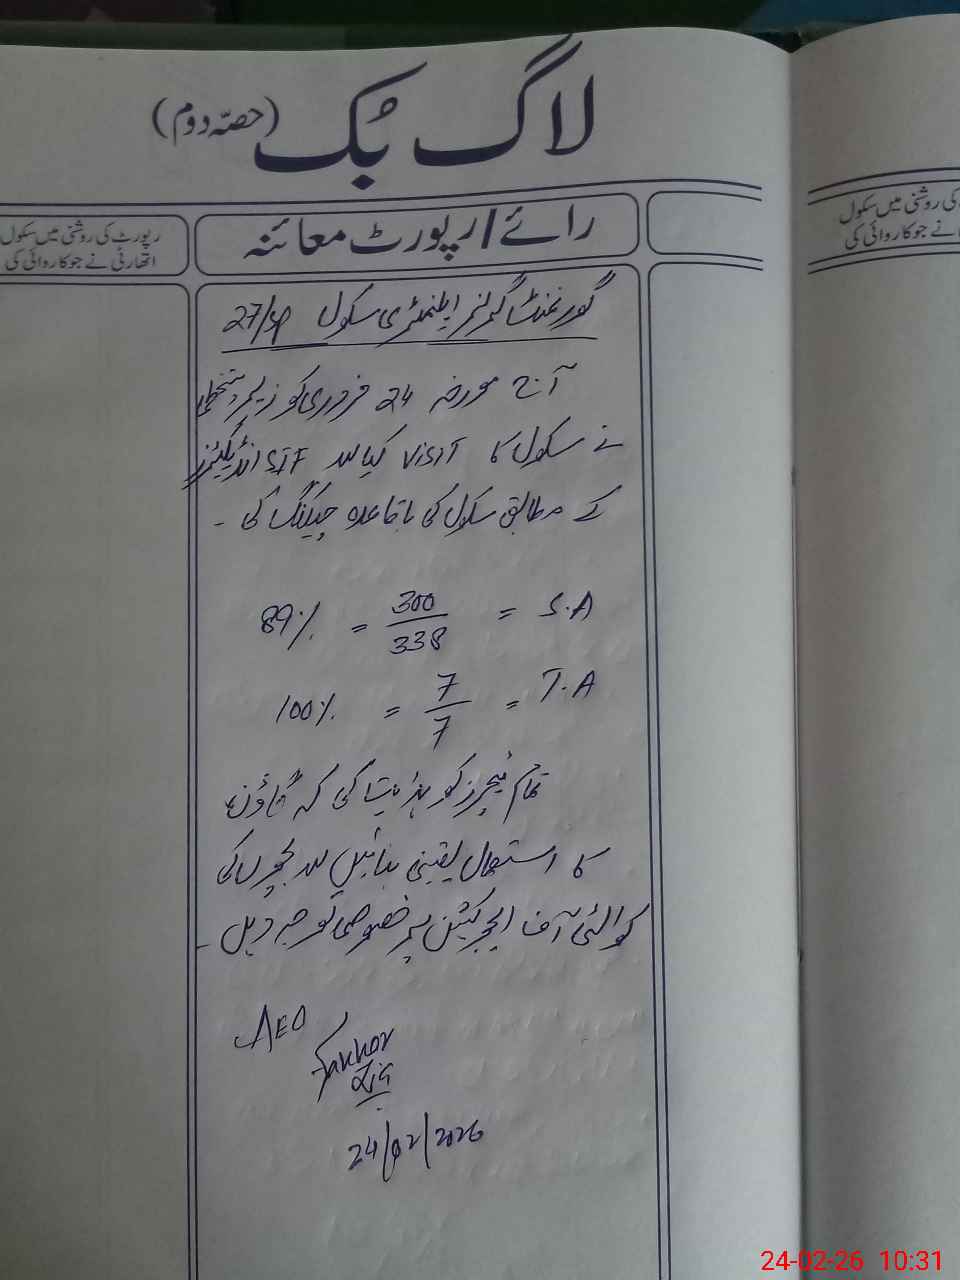 لاگ بُک (حصّہ دوم)
رائے/رپورٹ معائنہ
رپورٹ کی روشنی میں سکول
اتھارٹی نے جو کاروائی کی
کی روشنی میں سکول
نے جو کاروائی کی
گورنمنٹ گرلز ایلیمنٹری سکول 27/SP
آج مورخہ 24 فروری کو زیر دستخطی
نے سکول کا Visit کیا اور STF انڈیکیٹرز
کے مطابق سکول کی باقاعدہ چیکنگ کی -
S.A = 300/338 = 89%
T.A = 7/7 = 100%
تمام ٹیچرز کو ہدایت کی کہ گاؤن
کا استعمال یقینی بنائیں اور بچوں کی
کوالٹی آف ایجوکیشن پر خصوصی توجہ دیں -
AEO
Farkhor
Zia
24/02/2026
24-02-26 10:31